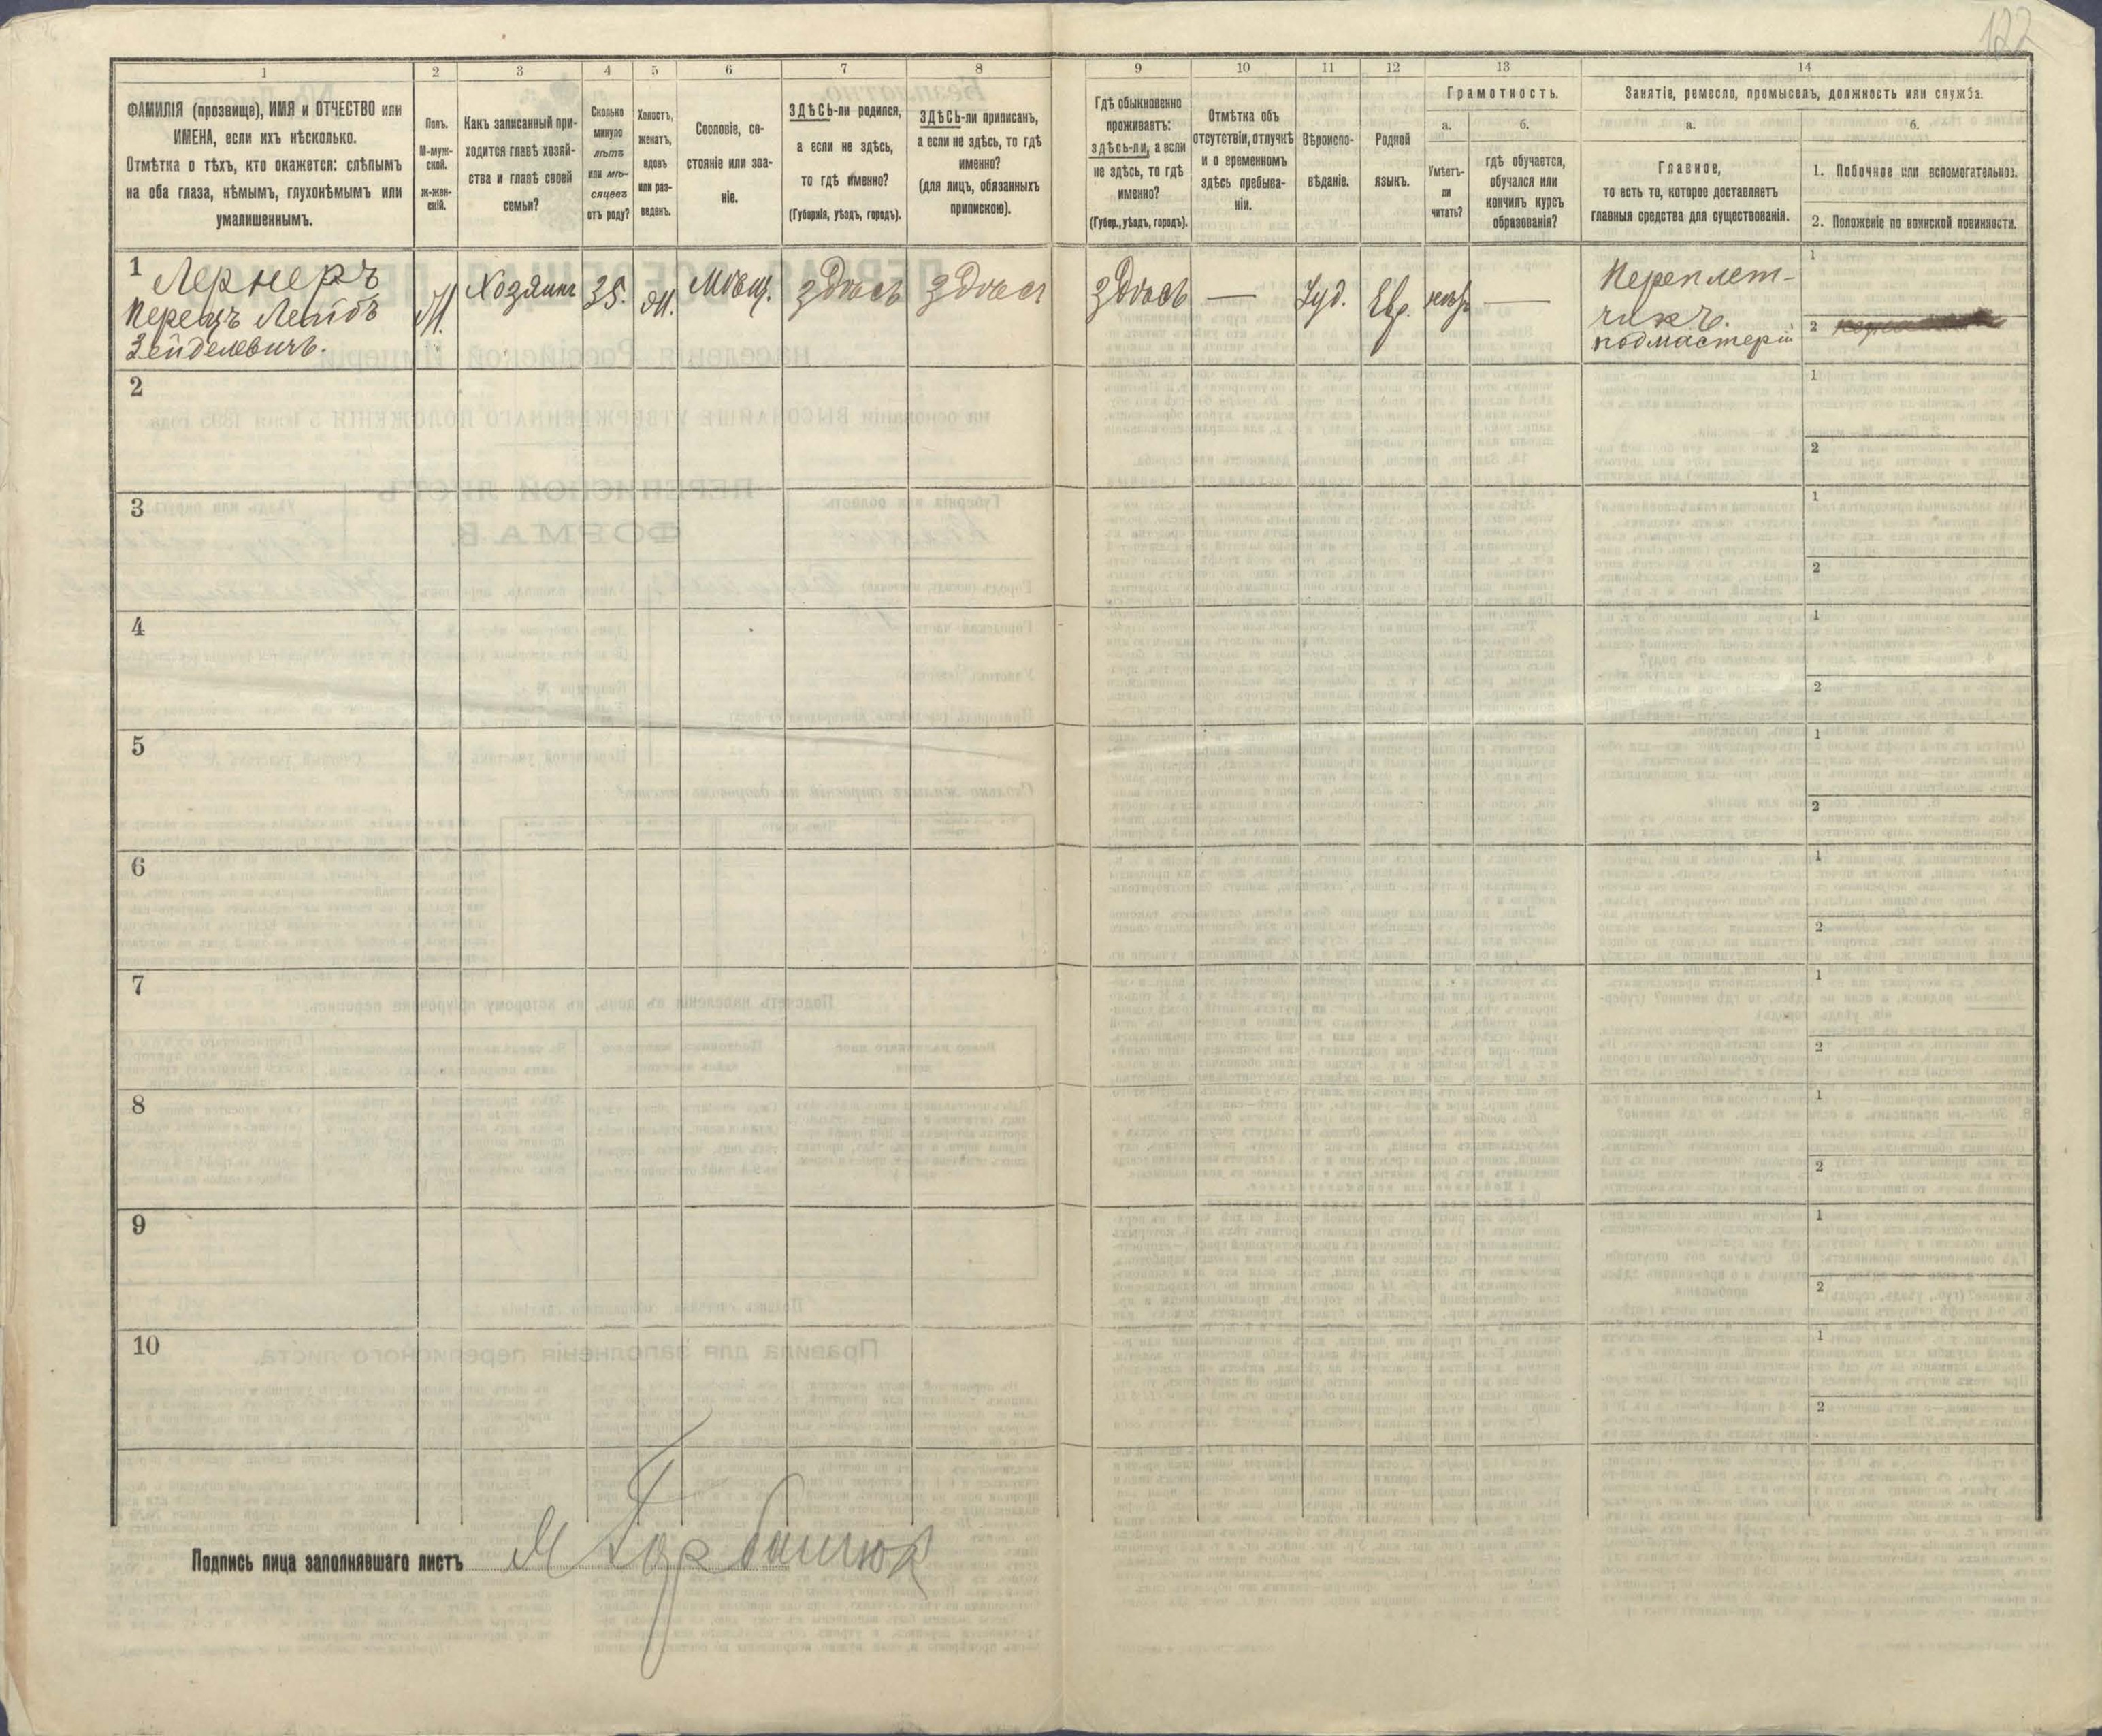 122
1
2
3
4
5
6
7
8
9
10
11
12
13
14
ФАМИЛІЯ (прозвище), ИМЯ и ОТЧЕСТВО или
ИМЕНА, если ихъ нѣсколько.
Отмѣтка о тѣхъ, кто окажется: слѣпымъ
на оба глаза, нѣмымъ, глухонѣмымъ или
умалишеннымъ.
Полъ.
М-муж-
ской.
ж-жен-
скій.
Какъ записанный при-
ходится главѣ хозяй-
ства и главѣ своей
семьи?
Сколько
минуло
лѣтъ
или мѣ-
сяцевъ
отъ роду?
Холостъ,
женатъ,
вдовъ
или раз-
веденъ.
Сословіе, со-
стояніе или зва-
ніе.
ЗДѢСЬ-ли родился,
а если не здѣсь,
то гдѣ именно?
(Губернія, уѣздъ, городъ).
ЗДѢСЬ-ли приписанъ,
а если не здѣсь, то гдѣ
именно?
(для лицъ, обязанныхъ
припискою).
Гдѣ обыкновенно
проживаетъ:
здѣсь-ли, а если
не здѣсь, то гдѣ
именно?
(Губер., уѣздъ, городъ).
Отмѣтка объ
отсутствіи, отлучкѣ
и о временномъ
здѣсь пребыва-
ніи.
Вѣроиспо-
вѣданіе.
Родной
языкъ.
Грамотность.
а.
Умѣетъ-
ли
читать?
б.
гдѣ обучается,
обучался или
кончилъ курсъ
образованія?
Занятіе, ремесло, промыселъ, должность или служба.
а.
Главное,
то есть то, которое доставляетъ
главныя средства для существованія.
б.
1. Побочное или вспомогательное.
2. Положеніе по воинской повинности.
1 Лернеръ
Перецъ Лейбъ
Зейделевичъ.
М.
Хозяинъ
35.
Мѣщ.
здѣсь
здѣсь
здѣсь
—
Іуд.
Евр.
—
Переплет-
чикъ.
подмастерій
1
2
2
1
2
3
1
2
4
1
2
5
1
2
6
1
2
7
1
2
8
1
2
9
1
2
10
1
2
Подпись лица заполнявшаго листъ